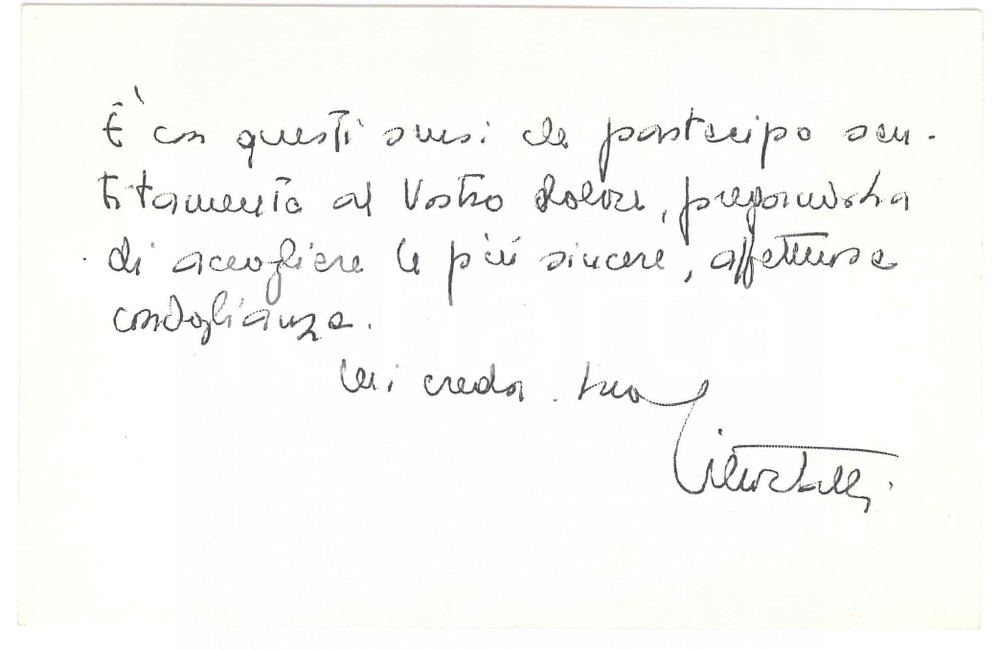 È con questi sensi che partecipo sen-
titamente al Vostro dolore, pregandola
di accogliere le più sincere, affettuose
condoglianze.
Mi creda. Suo